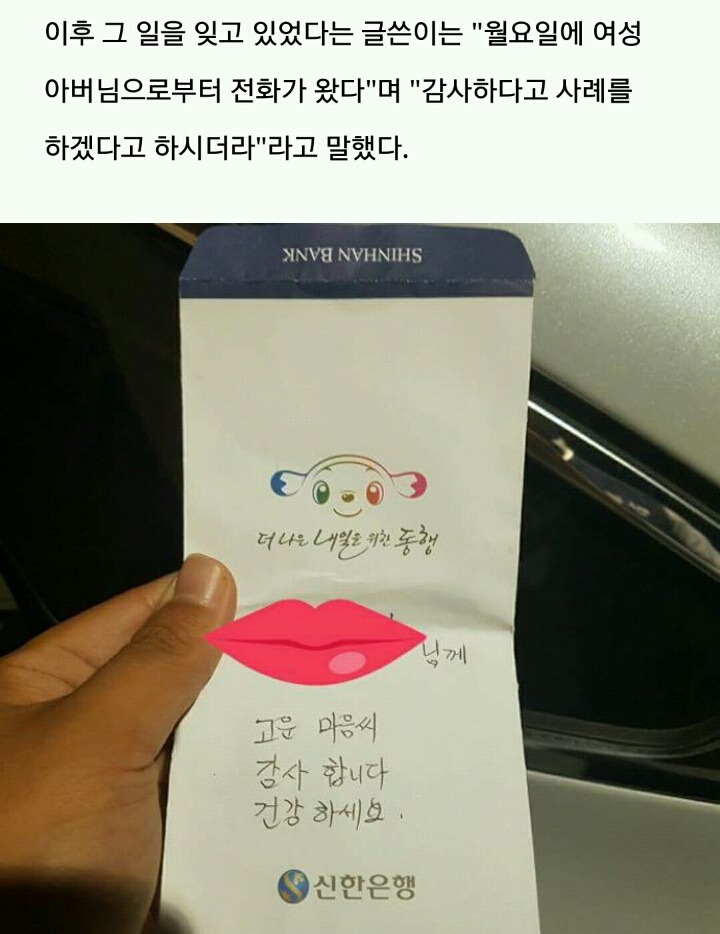 이후 그 일을 잊고 있었다는 글쓴이는 "월요일에 여성
아버님으로부터 전화가 왔다"며 "감사하다고 사례를
하겠다고 하시더라"라고 말했다.
SHINHAN BANK
더 나은 내일을 위한 동행
님께
고운 마음씨
감사 합니다
건강 하세요.
신한은행